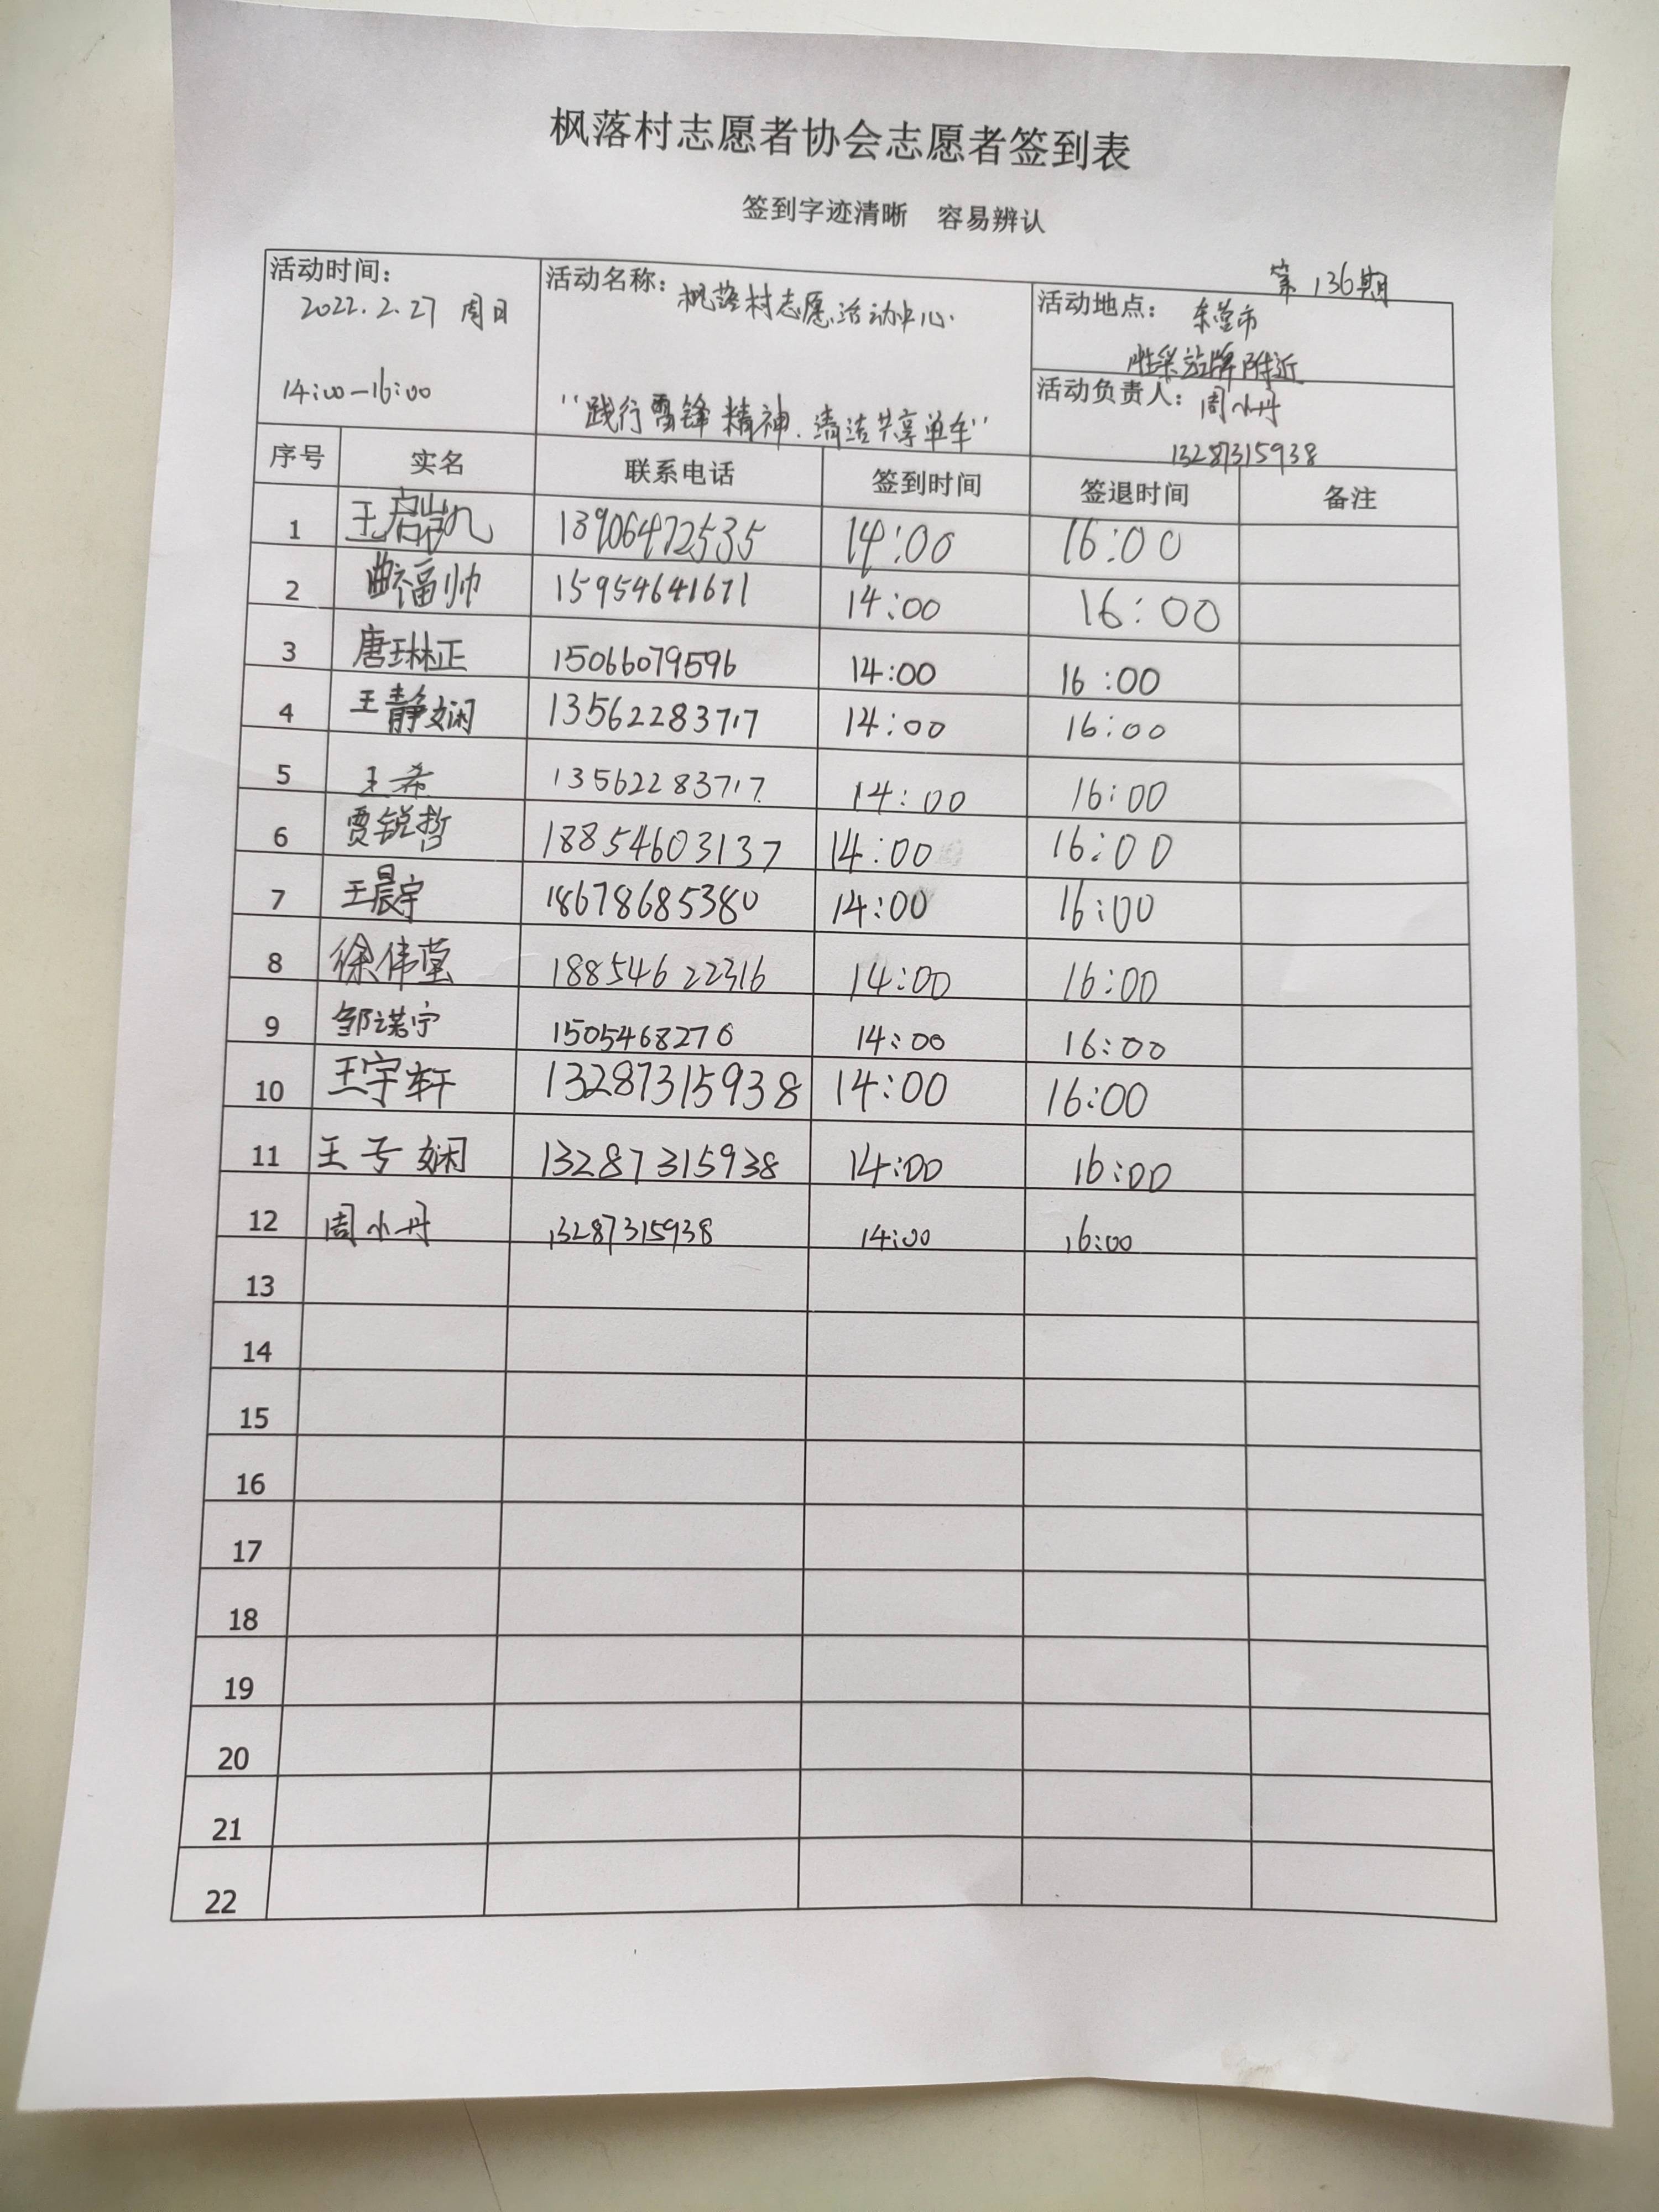 枫落村志愿者协会志愿者签到表
签到字迹清晰 容易辨认
第136期
活动时间: 2022.2.27 周日
14:00-16:00
活动名称: 枫落村志愿活动中心.
"践行雷锋精神.清洁共享单车"
活动地点: 东营市
胜采站牌附近
活动负责人: 周小丹
13287315938
序号 实名 联系电话 签到时间 签退时间 备注
1 王启 13906472535 14:00 16:00
2 曲福帅 15954641671 14:00 16:00
3 唐琳正 15066079596 14:00 16:00
4 王静娴 13562283717 14:00 16:00
5 王希 13562283717 14:00 16:00
6 贾锐哲 18854603137 14:00 16:00
7 王晨宇 18678685380 14:00 16:00
8 徐伟莹 18854622316 14:00 16:00
9 邹诺宁 1505468276 14:00 16:00
10 王宇轩 13287315938 14:00 16:00
11 王亏娴 13287315938 14:00 16:00
12 周小丹 13287315938 14:00 16:00
13
14
15
16
17
18
19
20
21
22